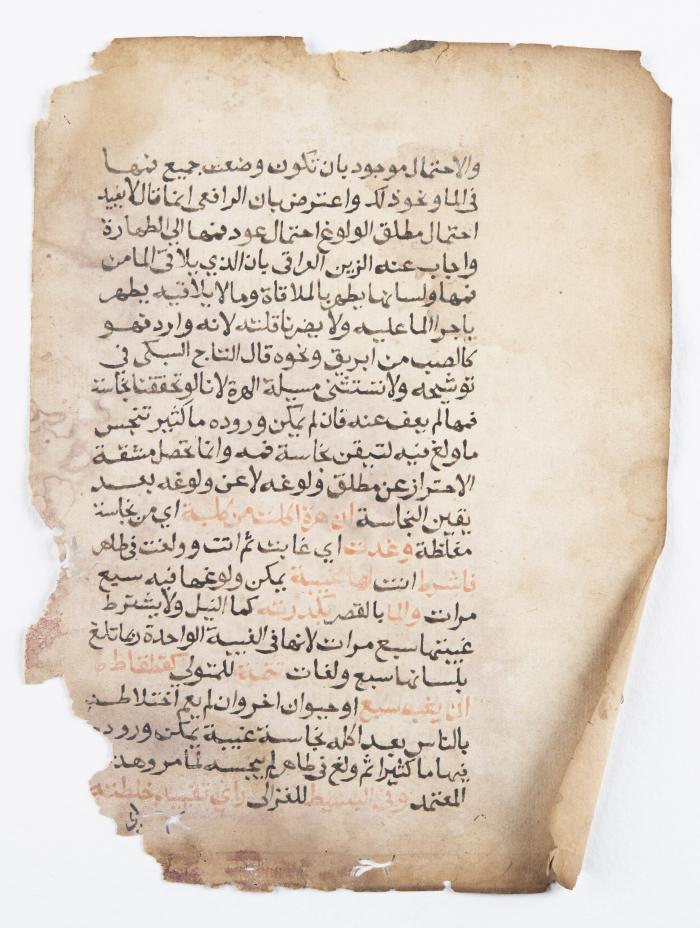 والاحتمال موجود بان تكون وضعت جميع فمها
في الما ونحو ذلك واعترض بان الرافعي انما قال لايفيد
احتمال مطلق الولوغ احتمال عود فمها الي الطهارة
واجاب عنه الزين العراقي بان الذي يلاقي الما من
فمها ولسانها يطهر بالملاقاة وما لا يلاقيه يطهر
باجرا الما عليه ولا يضرنا قلته لانه وارد فهو
كالصب من ابريق ونحوه قال التاج السبكي في
توشيحه ولا نستثني مسيلة الهرة لانا لو تحققنا نجاسة
فمها لم يعف عنه فان لم يمكن وروده ما كثير تنجس
ما ولغ فيه لتيقن نجاسة فمه وانما تحصل مشقة
الاحتراز عن مطلق ولوغه لا عن ولوغه بعد
يقين النجاسة ان هرة اكلت من كلبة اي من نجاسة
مغلظة وغدت اي غابت ثم اتت وولغت في طاهر
فاشرط انت لها غيبة يمكن ولوغها فيه سبع
مرات والما بالقصر بكدرته كما النيل ولا يشترط
غيبتها سبع مرات لانها في الغيبة الواحدة ربما تلغ
بلسانها سبع ولغات تتمة للمتولي
ان يغب سبع او حيوان اخر وان لم يعم اختلاطه
بالناس بعد اكله نجاسة غيبة يمكن وروده
فيها ما كثيرا ثم ولغ في طاهر لم ينجسه لما مر وهذا
المعتمد وفي البسيط للغزالي راي تقييد خلطته